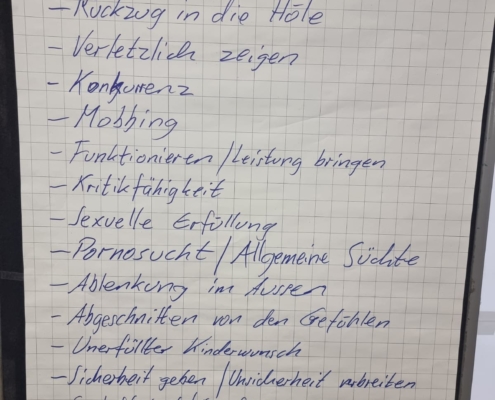 - Rückzug in die Höle
- Verletzlich zeigen
- Konkurrenz
- Mobbing
- Funktionieren / Leistung bringen
- Kritikfähigkeit
- Sexuelle Erfüllung
- Pornosucht / Allgemeine Süchte
- Ablenkung im Aussen
- Abgeschnitten von den Gefühlen
- Unerfüllter Kinderwunsch
- Sicherheit geben / Unsicherheit verbreiten